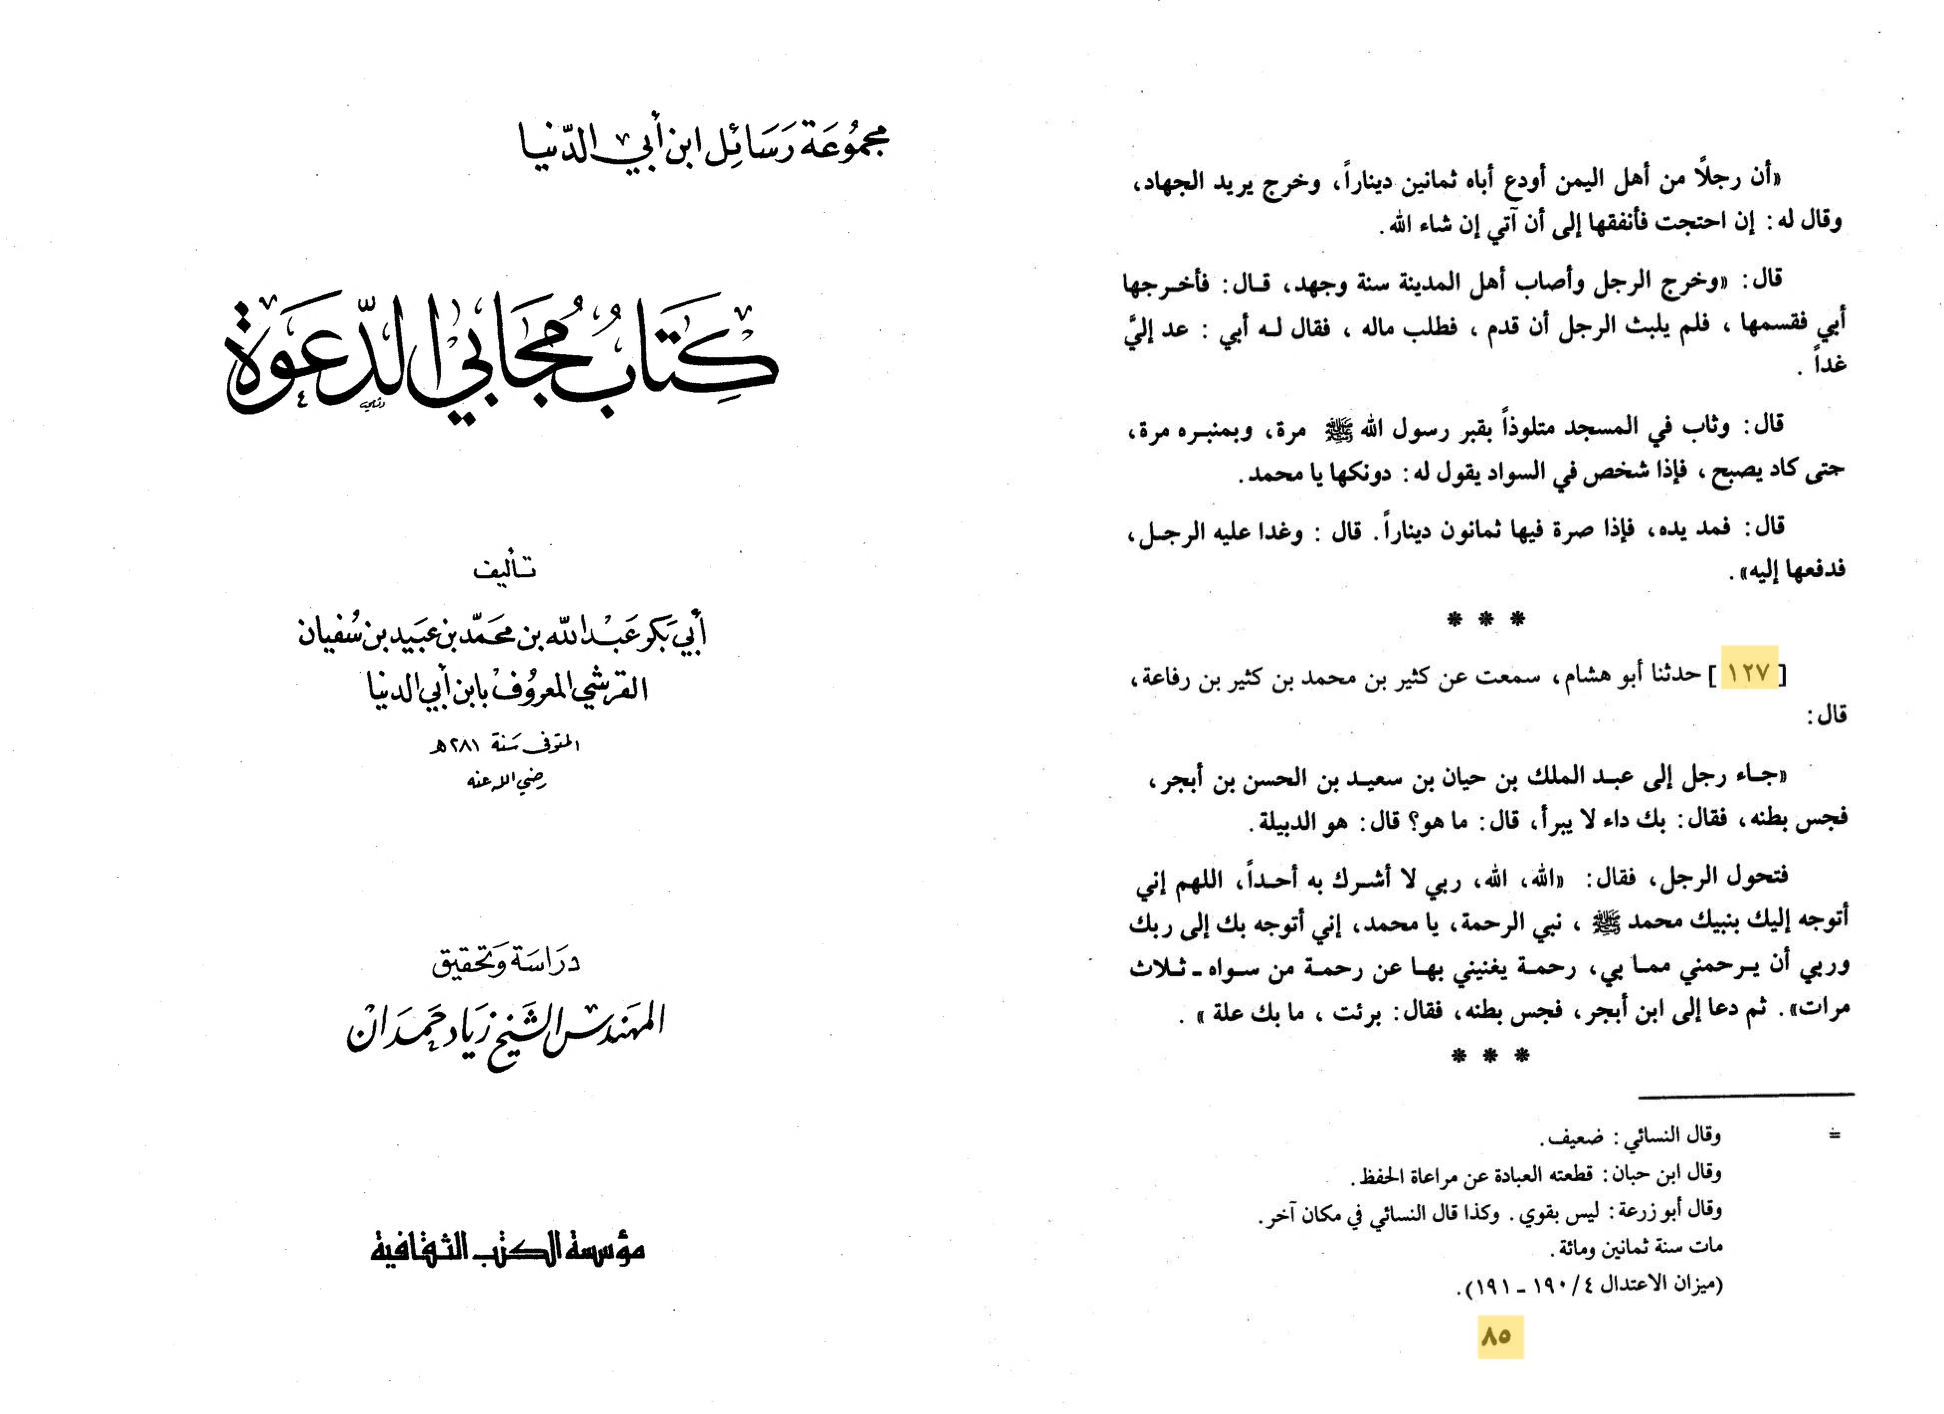 مجموعة رسائل ابن أبي الدنيا
كتاب مجابي الدعوة
تأليف
أبي بكر عبد الله بن محمد بن عبيد بن سفيان
القرشي المعروف بابن أبي الدنيا
المتوفى سنة ٢٨١ هـ
رضي الله عنه
دراسة وتحقيق
المهندس الشيخ زياد حمدان
مؤسسة الكتب الثقافية
«أن رجلًا من أهل اليمن أودع أباه ثمانين ديناراً، وخرج يريد الجهاد،
وقال له: إن احتجت فأنفقها إلى أن آتي إن شاء الله.
قال: «وخرج الرجل وأصاب أهل المدينة سنة وجهد، قال: فأخرجها
أبي فقسمها، فلم يلبث الرجل أن قدم، فطلب ماله، فقال له أبي: عد إليَّ
غداً.
قال: وثاب في المسجد متلوذاً بقبر رسول الله ﷺ مرة، وبمنبره مرة،
حتى كاد يصبح، فإذا شخص في السواد يقول له: دونكها يا محمد.
قال: فمد يده، فإذا صرة فيها ثمانون ديناراً. قال: وغدا عليه الرجل،
فدفعها إليه».
* * *
[١٢٧] حدثنا أبو هشام، سمعت عن كثير بن محمد بن كثير بن رفاعة،
قال:
«جاء رجل إلى عبد الملك بن حيان بن سعيد بن الحسن بن أبجر،
فجس بطنه، فقال: بك داء لا يبرأ، قال: ما هو؟ قال: هو الدبيلة.
فتحول الرجل، فقال: «الله، الله، ربي لا أشرك به أحداً، اللهم إني
أتوجه إليك بنبيك محمد ﷺ، نبي الرحمة، يا محمد، إني أتوجه بك إلى ربك
وربي أن يرحمني مما بي، رحمة يغنيني بها عن رحمة من سواه ـ ثلاث
مرات». ثم دعا إلى ابن أبجر، فجس بطنه، فقال: برئت، ما بك علة».
* * *
= وقال النسائي: ضعيف.
وقال ابن حبان: قطعته العبادة عن مراعاة الحفظ.
وقال أبو زرعة: ليس بقوي. وكذا قال النسائي في مكان آخر.
مات سنة ثمانين ومائة.
(ميزان الاعتدال ٤/١٩٠ ـ ١٩١).
٨٥